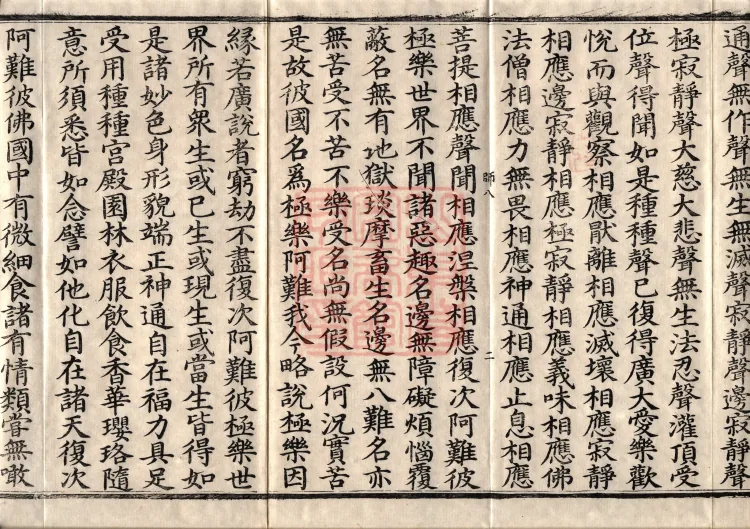 通聲無作聲無生無滅聲寂靜聲邊寂靜聲
極寂靜聲大慈大悲聲無生法忍聲灌頂受
位聲得聞如是種種聲已復得廣大愛樂歡
悅而與觀察相應猒離相應滅壞相應寂靜
相應邊寂靜相應極寂靜相應義味相應佛
法僧相應力無畏相應神通相應止息相應
師八 二
菩提相應聲聞相應涅槃相應復次阿難彼
極樂世界不聞諸惡趣名邊無障礙煩惱覆
蔽名無有地獄琰摩畜生名邊無八難名亦
無苦受不苦不樂受名尚無假設何況實苦
是故彼國名爲極樂阿難我今略說極樂因
縁若廣說者窮劫不盡復次阿難彼極樂世
界所有衆生或已生或現生或當生皆得如
是諸妙色身形貌端正神通自在福力具足
受用種種宮殿園林衣服飲食香華瓔珞隨
意所須悉皆如念譬如他化自在諸天復次
阿難彼佛國中有微細食諸有情類甞無噉